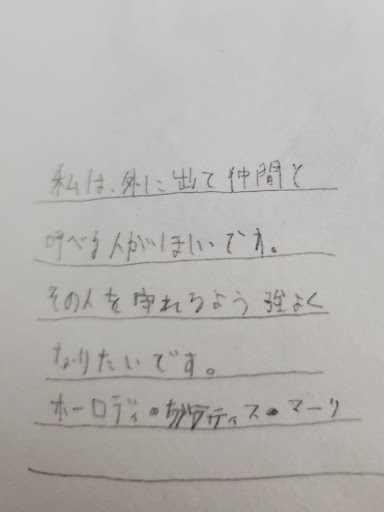 私は、外に出て仲間と
呼べる人がほしいです。
その人を守れるよう強よく
なりたいです。
ホーロディ・ガラティス・マーリ